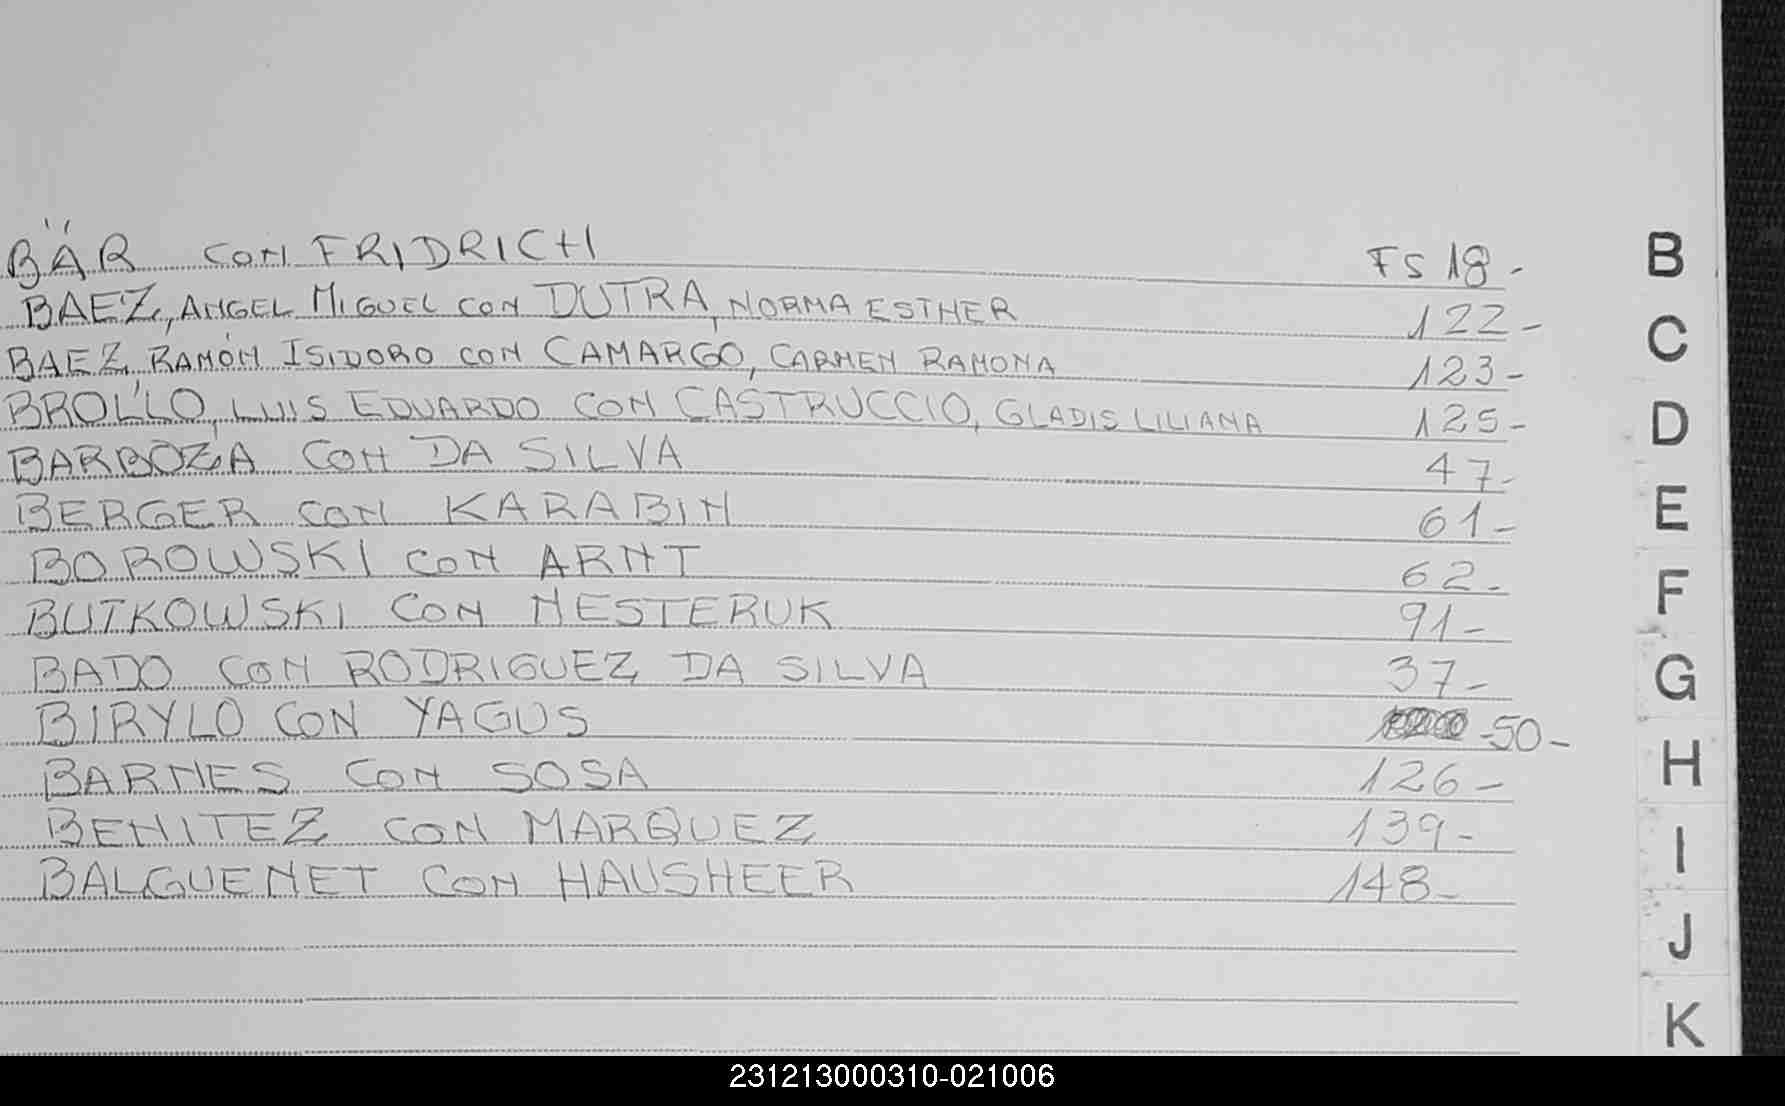 BÄR con FRIDRICH FS 18-
BAEZ, ANGEL MIGUEL con DUTRA, NORMA ESTHER 122-
BAEZ, RAMÓN ISIDORO con CAMARGO, CARMEN RAMONA 123-
BROLLO, LUIS EDUARDO CON CASTRUCCIO, GLADIS LILIANA 125-
BARBOZA CON DA SILVA 47-
BERGER con KARABIN 61-
BOROWSKI con ARNT 62-
BUTKOWSKI CON NESTERUK 91-
BADO CON RODRIGUEZ DA SILVA 37-
BIRYLO CON YAGUS -50-
BARNES CON SOSA 126-
BENITEZ CON MARQUEZ 139-
BALGUENET CON HAUSHEER 148-
B
C
D
E
F
G
H
I
J
K
231213000310-021006